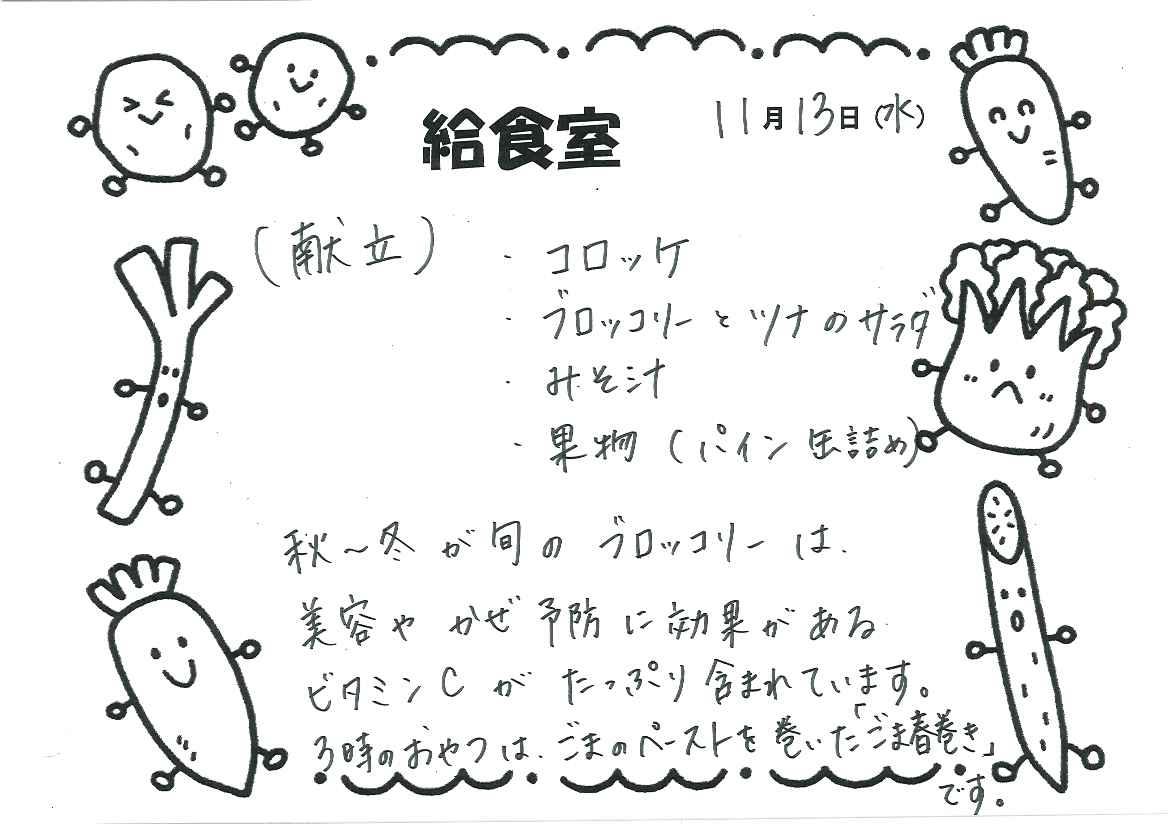 給食室
11月13日(水)
(献立)
・コロッケ
・ブロッコリーとツナのサラダ
・みそ汁
・果物(パイン缶詰め)
秋~冬が旬のブロッコリーは、
美容やかぜ予防に効果がある
ビタミンCがたっぷり含まれています。
3時のおやつは、ごまのペーストを巻いた「ごま春巻き」
です。